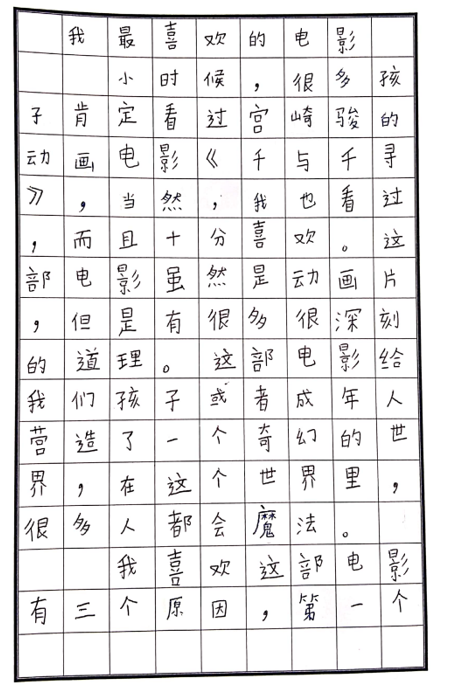 我最喜欢的电影
小时候，很多孩
子肯定看过宫崎骏的
动画电影《千与千寻
》，当然，我也看过
，而且十分喜欢。这
部电影虽然是动画片
，但是有很多很深刻
的道理。这部电影给
我们孩子或者成年人
营造了一个奇幻的世
界，在这个世界里，
很多人都会魔法。
我喜欢这部电影
有三个原因，第一个